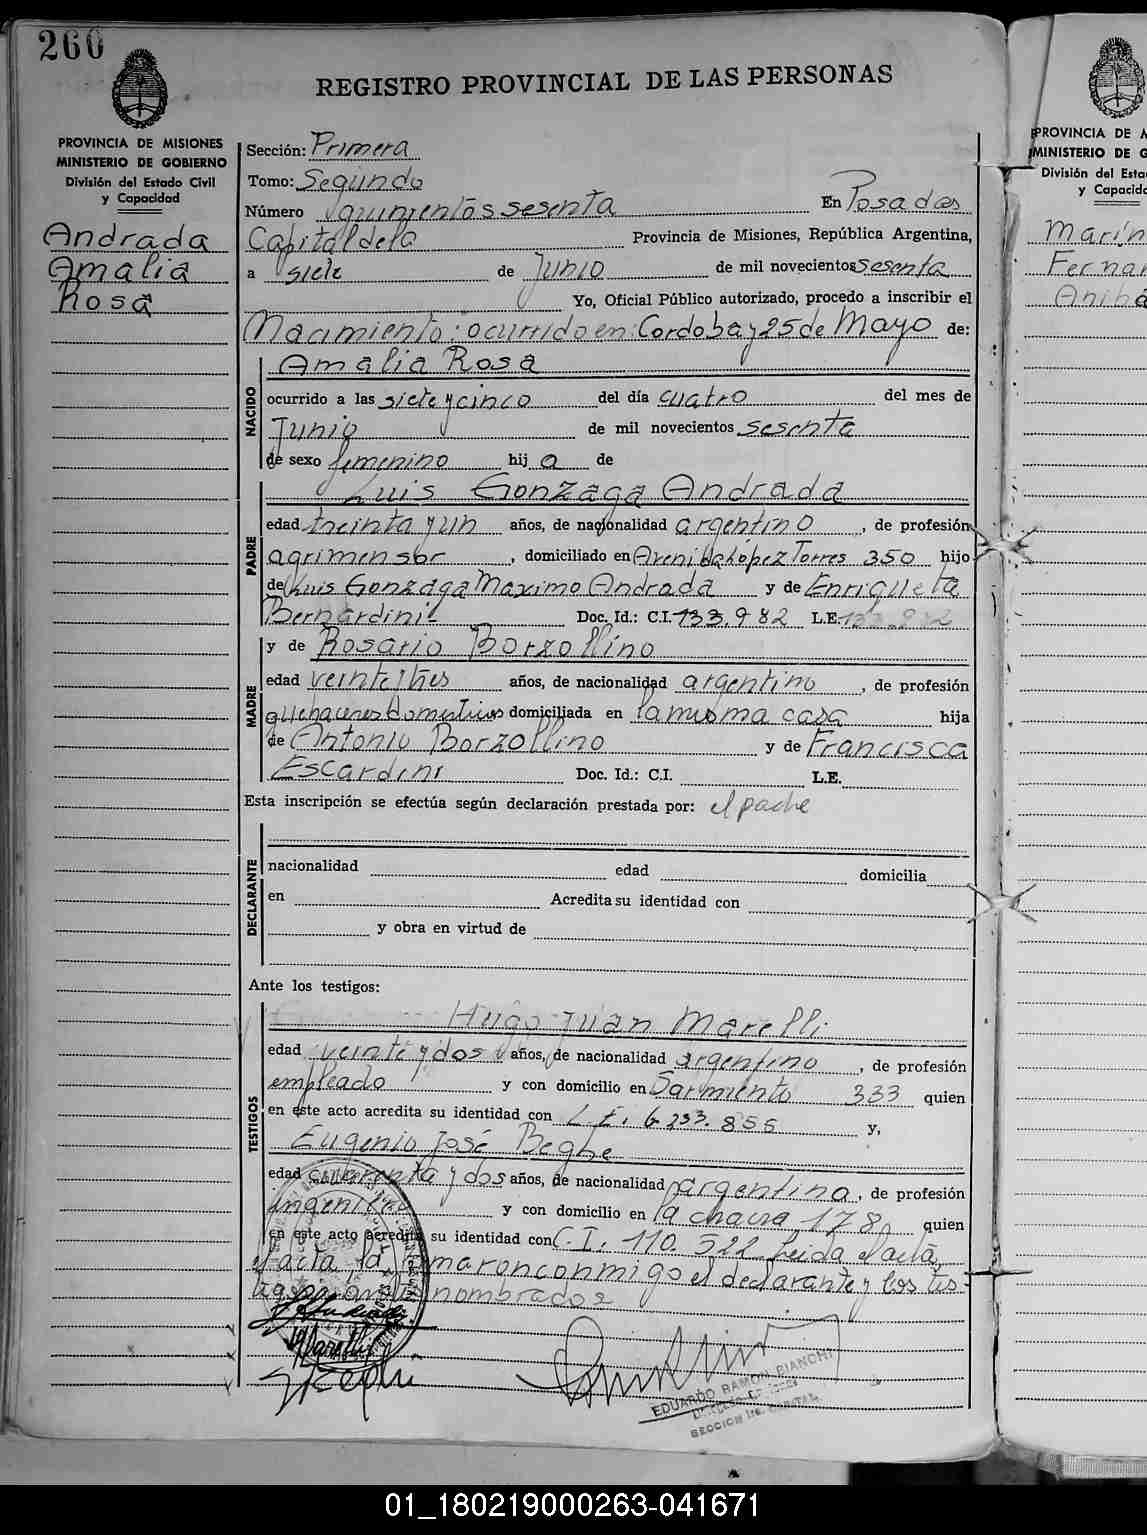 260
REGISTRO PROVINCIAL DE LAS PERSONAS
PROVINCIA DE MISIONES
MINISTERIO DE GOBIERNO
División del Estado Civil
y Capacidad
Andrada
Amalia
Rosa
Sección: Primera
Tomo: Segundo
Número quinientos sesenta En Posadas
Capital de la Provincia de Misiones, República Argentina,
a siete de Junio de mil novecientos sesenta
Yo, Oficial Público autorizado, procedo a inscribir el
Nacimiento: ocurrido en: Cordoba y 25 de Mayo de:
NACIDO
Amalia Rosa
ocurrido a las siete y cinco del día cuatro del mes de
Junio de mil novecientos sesenta
de sexo femenino hij a de
PADRE
Luis Gonzaga Andrada
edad treinta y un años, de nacionalidad argentino, de profesión
agrimensor, domiciliado en Avenida López Torres 350 hijo
de Luis Gonzaga Maximo Andrada y de Enriqueta
Bernardini Doc. Id.: C.I. 133.982 L.E. 133.982
y de Rosario Borzollino
MADRE
edad veintitres años, de nacionalidad argentino, de profesión
quehaceres domesticos domiciliada en la misma casa hija
de Antonio Borzollino y de Francisca
Escardini Doc. Id.: C.I. L.E.
Esta inscripción se efectúa según declaración prestada por: el padre
DECLARANTE
nacionalidad edad domicilia
en Acredita su identidad con
y obra en virtud de
Ante los testigos:
TESTIGOS
Hugo Juan Marelli
edad veinte y dos años, de nacionalidad argentino, de profesión
empleado y con domicilio en Sarmiento 333 quien
en este acto acredita su identidad con L.E. 6.233.855 y,
Eugenio José Beghe
edad cuarenta y dos años, de nacionalidad argentina, de profesión
ingeniero y con domicilio en la chacra 178 quien
en este acto acredita su identidad con C.I. 110.522 Leida el acta,
el acta, la firmaron conmigo el declarante y los tes
tigos nombrados
EDUARDO RAMON BIANCHI
PROVINCIA DE M
MINISTERIO DE G
División del Esta
y Capacid
Marín
Fernan
Aniba
01_180219000263-041671